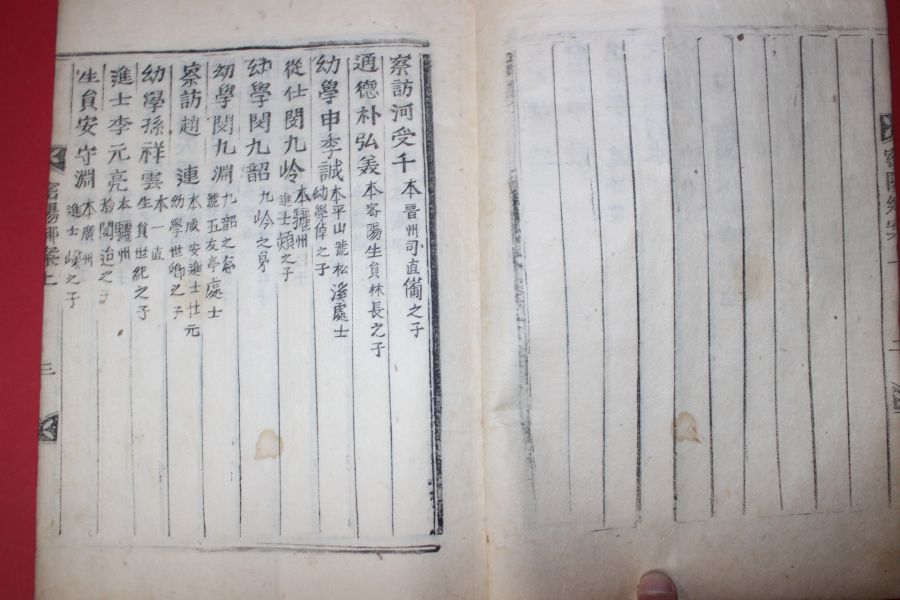 密陽鄕案
察訪河受千 本晉州司直備之子
通德朴弘義 本密陽生員林長之子
幼學申季誠 本平山號松溪處士
幼學倬之子
從仕閔九岭 本驪州
進士頍之子
幼學閔九韶 九岭之弟
幼學閔九淵 九韶之弟
號五友亭處士
察訪趙連 本咸安進士仕元
幼學世卿之子
幼學孫祥雲 本一直
生員世紀之子
進士李元亮 本驪州
之子
生員安守淵 本廣州
進士嶸之子
密陽鄕案上 三